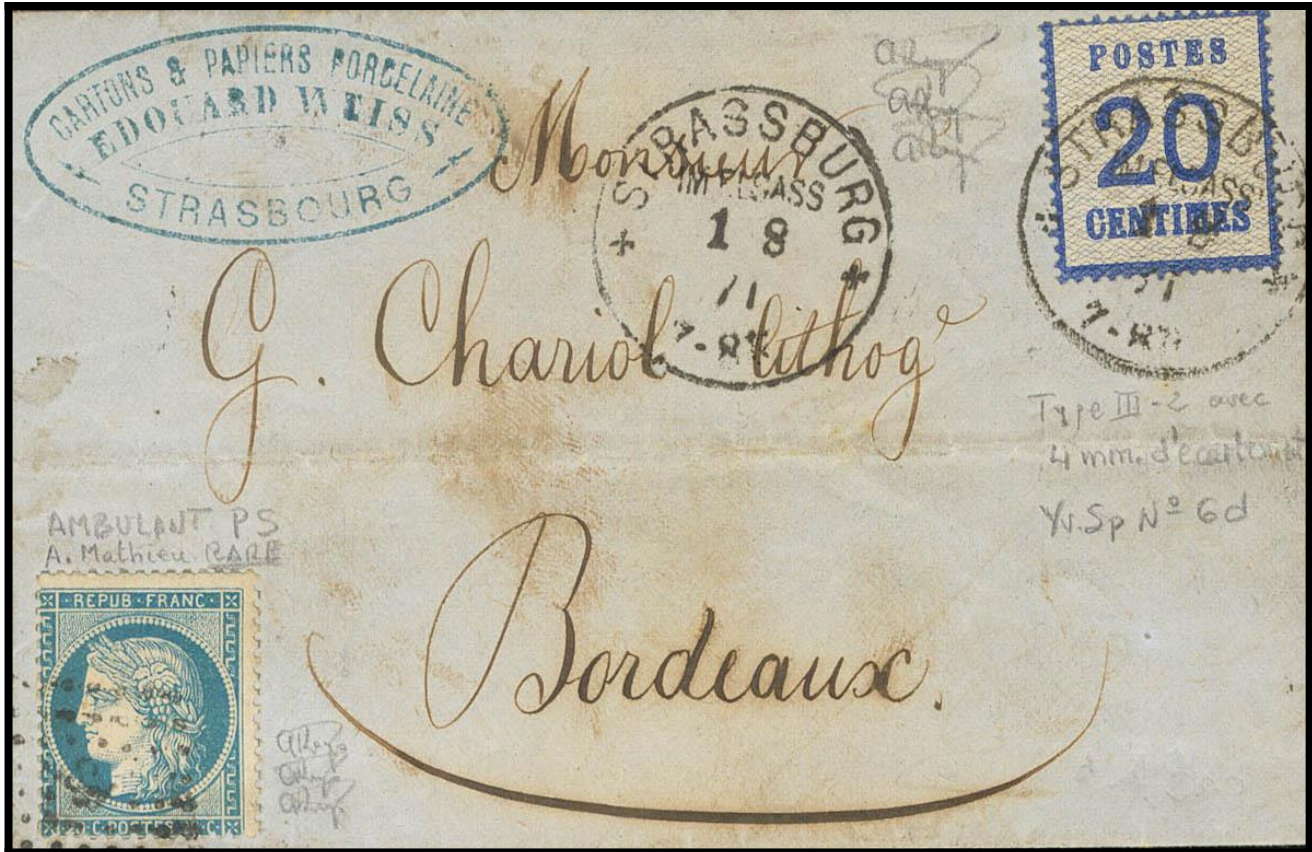 CARTONS & PAPIERS PORCELAINES
EDOUARD WEISS
STRASBOURG
POSTES
20
CENTIMES
STRASSBURG
IM ELSASS
1 8
71
7-8
STRASSBURG
Monsieur
G. Chariol lithogᵉ
Bordeaux.
Type III-2 avec
4 mm. d'écartement
Yv. Sp Nº 6d
AMBULANT PS
A. Mathieu RARE
REPUB·FRANC
C·POSTES